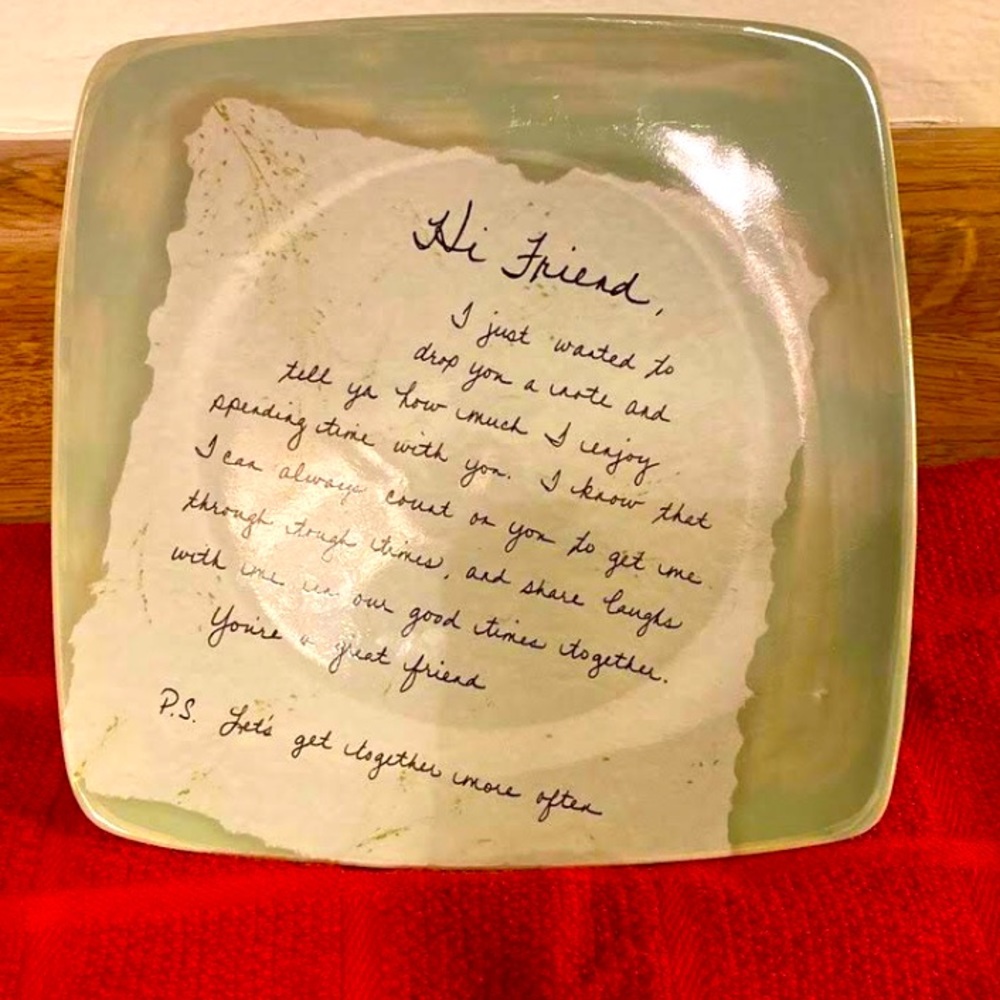 Hi Friend,
I just wanted to
drop you a note and
tell ya how much I enjoy
spending time with you. I know that
I can always count on you to get me
through tough times, and share laughs
with me in our good times together.
You're a great friend
P.S. Let's get together more often